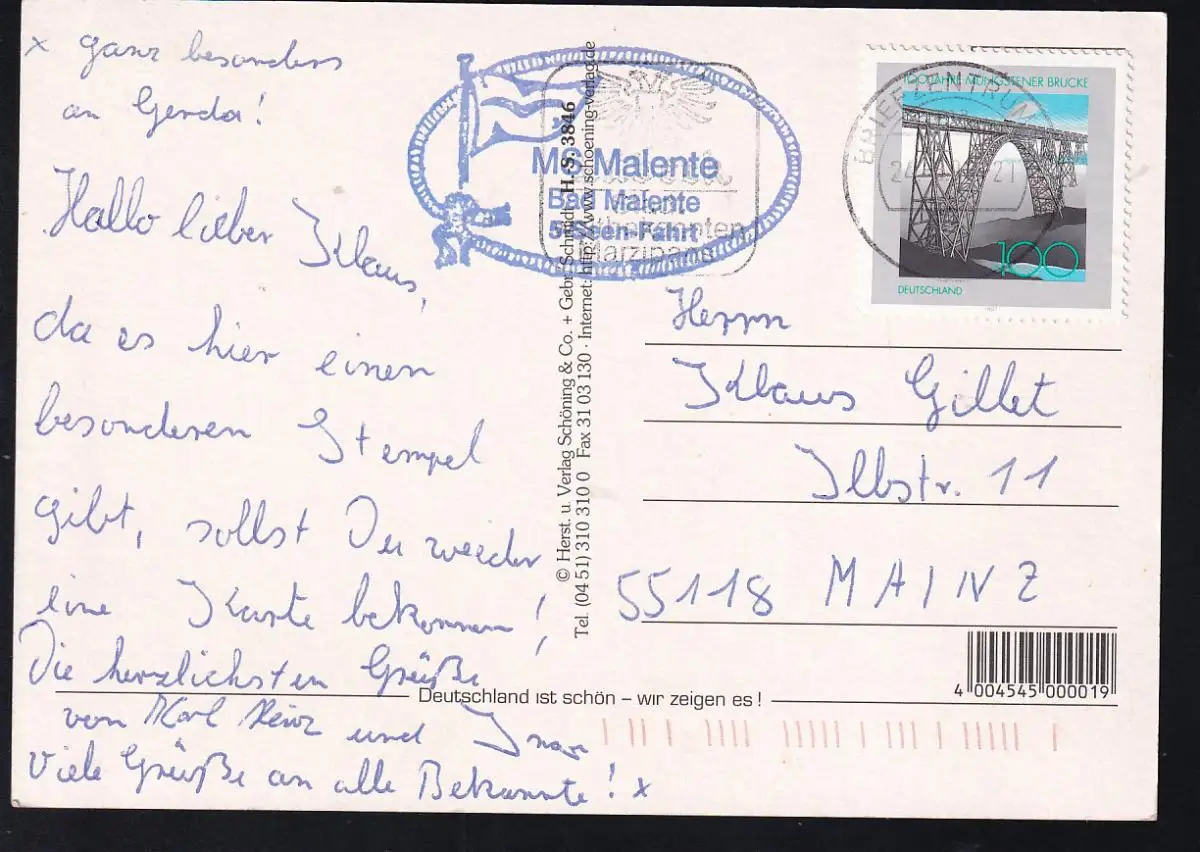 x ganz besonders
an Gerda!
Hallo lieber Klaus,
da es hier einen
besonderen Stempel
gibt, sollst Du wieder
eine Karte bekommen!
Die herzlichsten Grüße
von Karl Heinz und
Viele Grüße an alle Bekannte! x
MS Malente
Bad Malente
5-Seen-Fahrt
Marzipans
H. S. 3846
© Herst. u. Verlag Schöning & Co. + Gebr. Schmidt
Tel. (04 51) 310 310 0 Fax 31 03 130 · Internet: http://www.schoening-verlag.de
BRIEFZENTRUM
100 JAHRE MÜNGSTENER BRÜCKE
100
DEUTSCHLAND
Herrn
Klaus Gillet
Ilbstr. 11
55118 MAINZ
4 004545 000019
Deutschland ist schön – wir zeigen es!